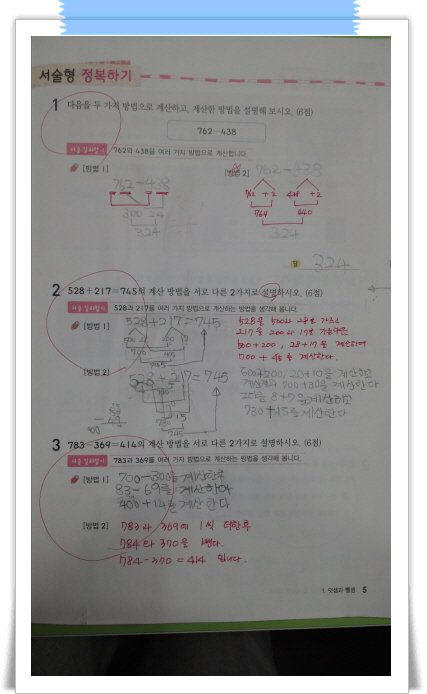 서술형 정복하기
1 다음을 두 가지 방법으로 계산하고, 계산한 방법을 설명해 보시오. (6점)
762-438
762와 438을 여러 가지 방법으로 계산합니다.
[방법 1]
762-438
300 24
324
[방법 2] 762-438
762 +2 438 +2
764 440
324
답 324
2 528+217=745의 계산 방법을 서로 다른 2가지로 설명하시오. (6점)
528과 217을 여러 가지 방법으로 계산하는 방법을 생각해 봅니다.
[방법 1] 528+217=745
528을 500과 28로 가르고
217을 200과 17로 가른다음
500+200, 28+17을 계산하여
700 + 45를 계산한다.
[방법 2]
528+217=745
730+15를 계산한다
3 783-369=414의 계산 방법을 서로 다른 2가지로 설명하시오. (6점)
783과 369를 여러 가지 방법으로 계산하는 방법을 생각해 봅니다.
[방법 1] 700-300을 계산한후
83-69를 계산하여
400+14를 계산한다
[방법 2] 783과 369에 1씩 더한후
784와 370을 뺀다.
784-370=414 입니다.
1. 덧셈과 뺄셈 5